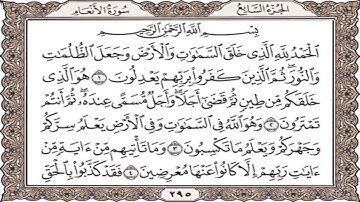 الجزء السابع
سورة الأنعام
بسم الله الرحمن الرحيم
الحمد لله الذي خلق السموات والأرض وجعل الظلمت
والنور ثم الذين كفروا بربهم يعدلون ١ هو الذي
خلقكم من طين ثم قضى أجلا وأجل مسمى عنده ثم أنتم
تمترون ٢ وهو الله في السموات وفي الأرض يعلم سركم
وجهركم ويعلم ما تكسبون ٣ وما تأتيهم من ءاية من
ءايت ربهم إلا كانوا عنها معرضين ٤ فقد كذبوا بالحق
٢٩٥